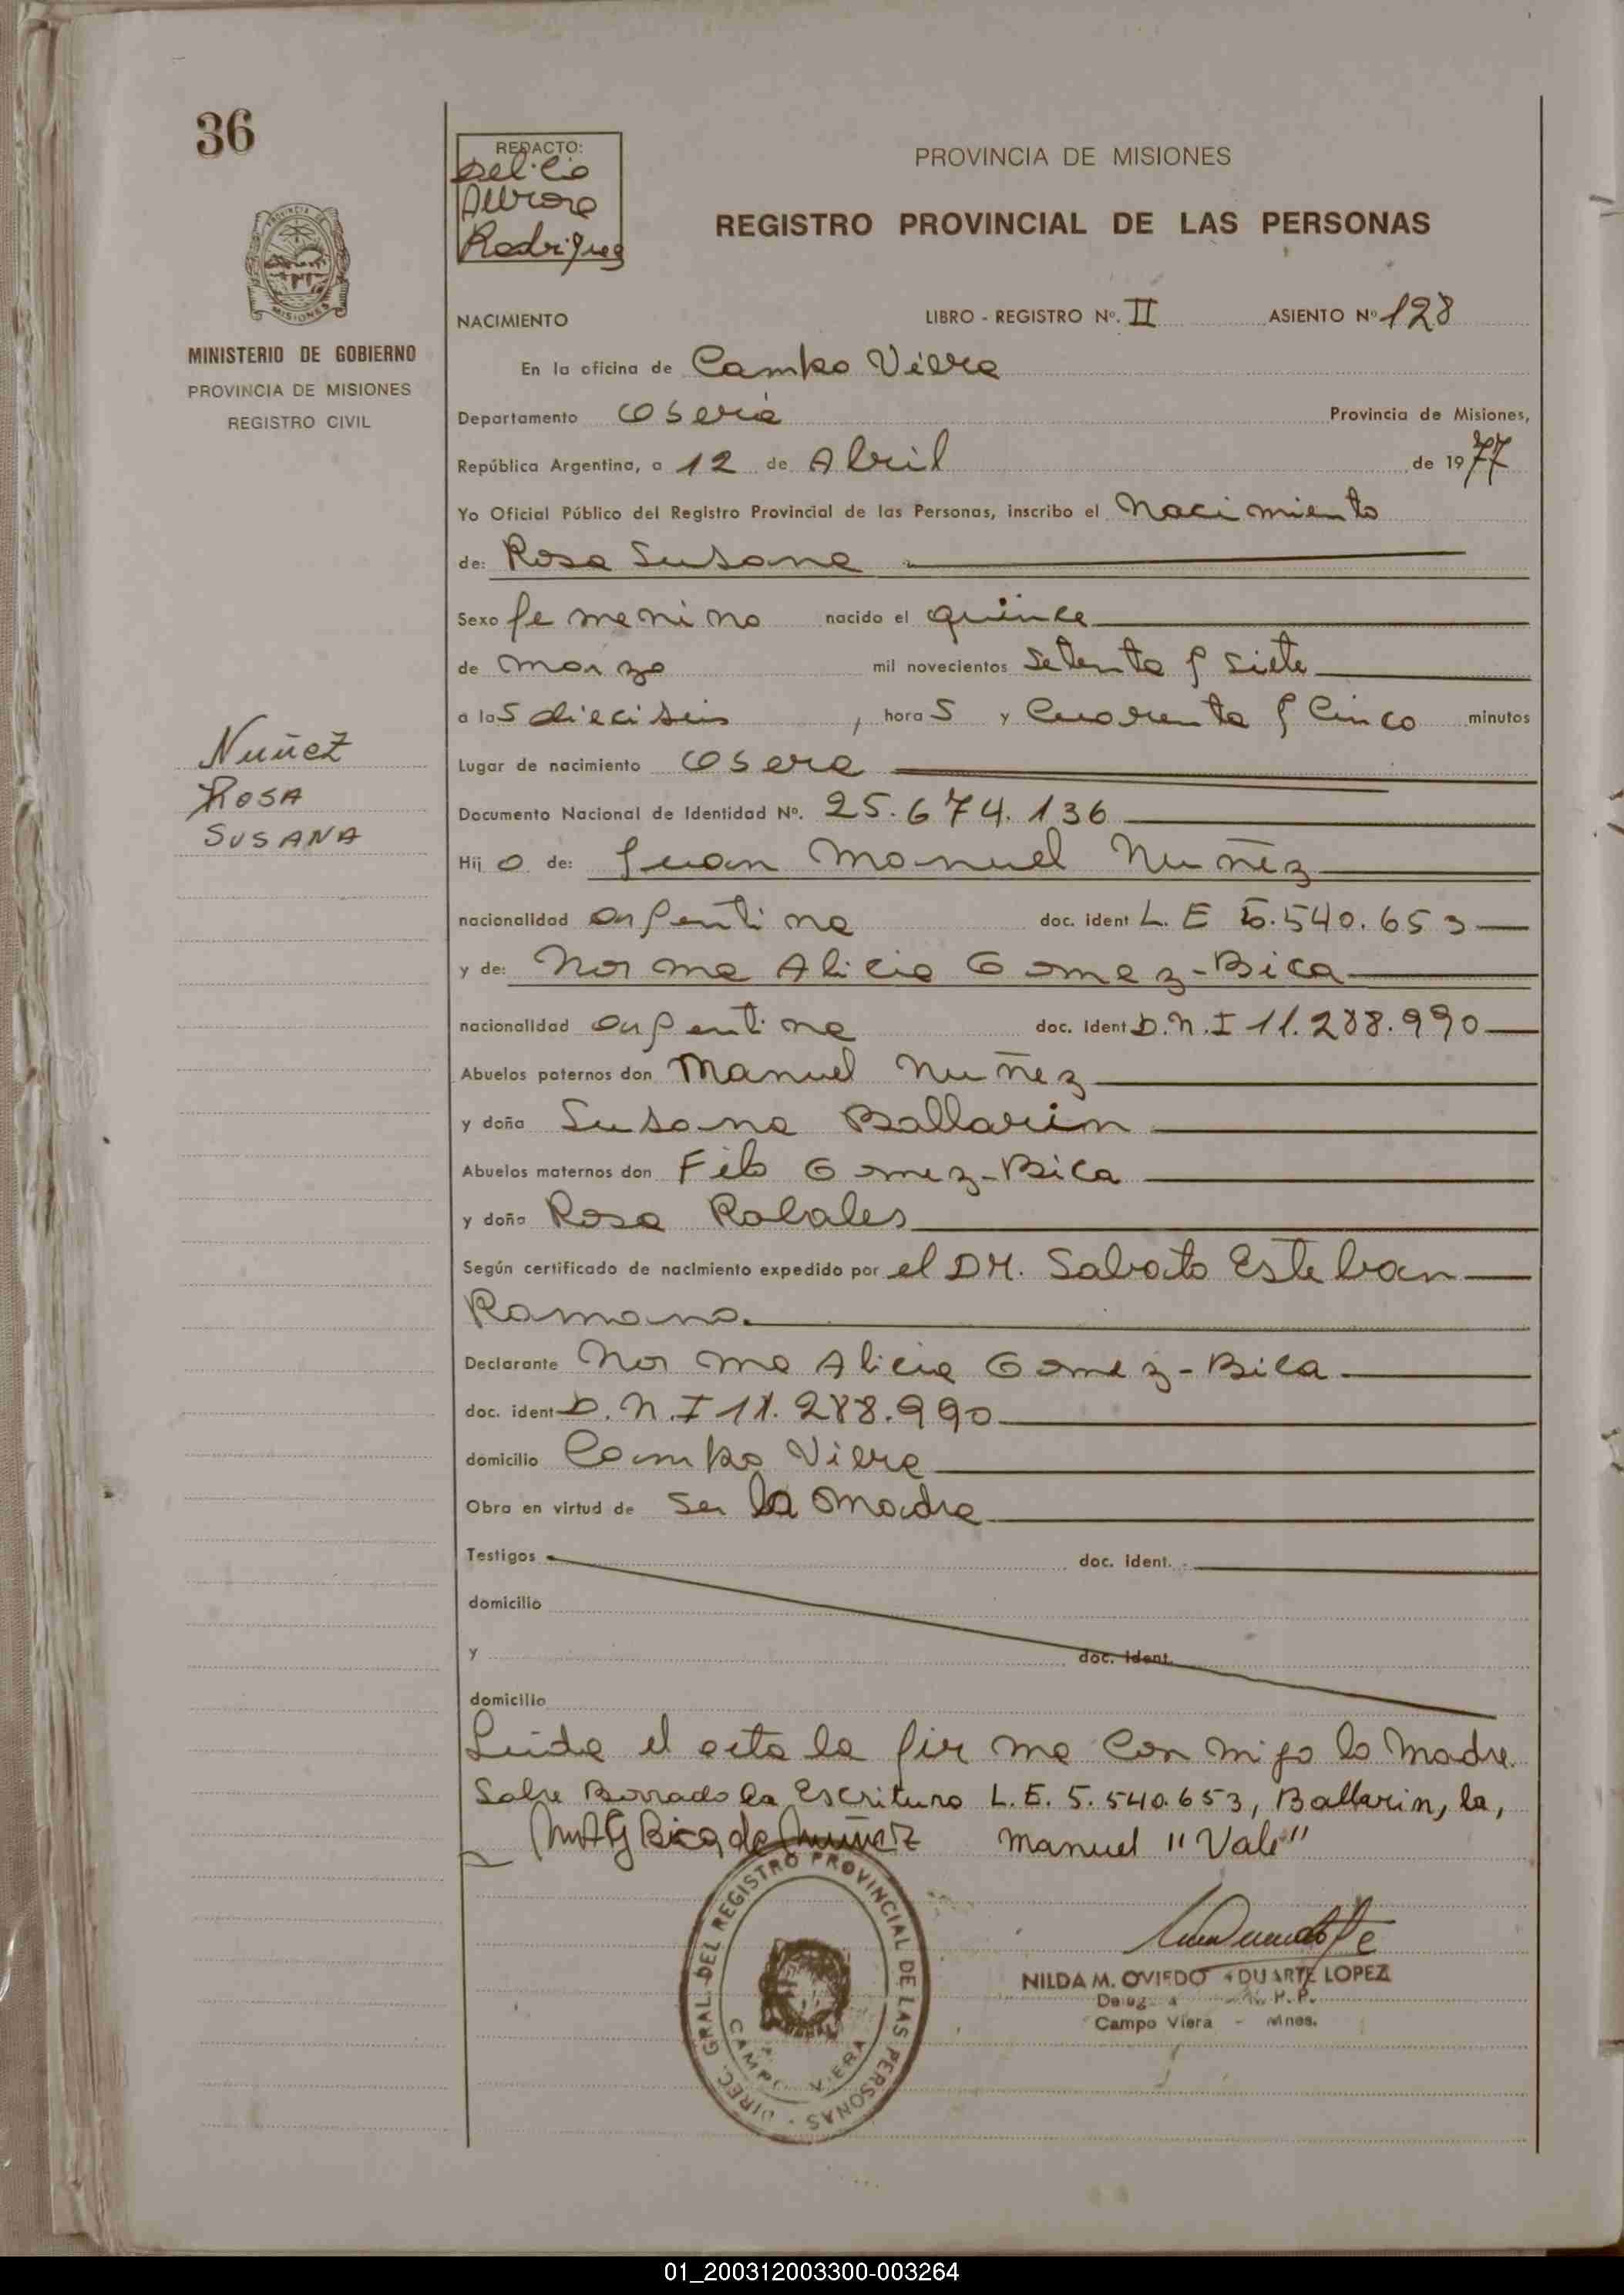 36
REDACTO:
Delicia
Aurora
Rodriguez
PROVINCIA DE MISIONES
REGISTRO PROVINCIAL DE LAS PERSONAS
PROVINCIA DE
MISIONES
MINISTERIO DE GOBIERNO
PROVINCIA DE MISIONES
REGISTRO CIVIL
NACIMIENTO LIBRO - REGISTRO Nº. II ASIENTO Nº 128
En la oficina de Campo Viera
Departamento Oberá Provincia de Misiones,
República Argentina, a 12 de Abril de 1977
Yo Oficial Público del Registro Provincial de las Personas, inscribo el Nacimiento
de: Rosa Susana
Sexo femenino nacido el quince
de marzo mil novecientos setenta y siete
a las dieciseis, horas y Cuarenta y Cinco minutos
Lugar de nacimiento Oberá
Nuñez
Rosa
Susana
Documento Nacional de Identidad Nº. 25.674.136
Hij a de: Juan Manuel Nuñez
nacionalidad argentina doc. ident L. E 5.540.653
y de: Norma Alicia Gomez-Bica
nacionalidad argentina doc. ident D.N.I 11.288.990
Abuelos paternos don Manuel Nuñez
y doña Susana Ballarin
Abuelos maternos don Gomez-Bica
y doña Rosa
Según certificado de nacimiento expedido por el DR. Sabato Esteban
Romano.
Declarante Norma Alicia Gomez-Bica
doc. ident D.N.I 11.288.990
domicilio Campo Viera
Obra en virtud de ser la madre
Testigos doc. ident.
domicilio
y doc. ident.
domicilio
Leida el acta la firma conmigo la Madre.
Sobre Borrado la Escritura L.E. 5.540.653, Ballarin, la,
Bica de Nuñez Manuel "Vale"
DIREC. GRAL. DEL REGISTRO PROVINCIAL DE LAS PERSONAS
CAMPO VIERA
NILDA M. OVIEDO DUARTE LOPEZ
R. P. P.
Campo Viera - Mnes.
01_200312003300-003264